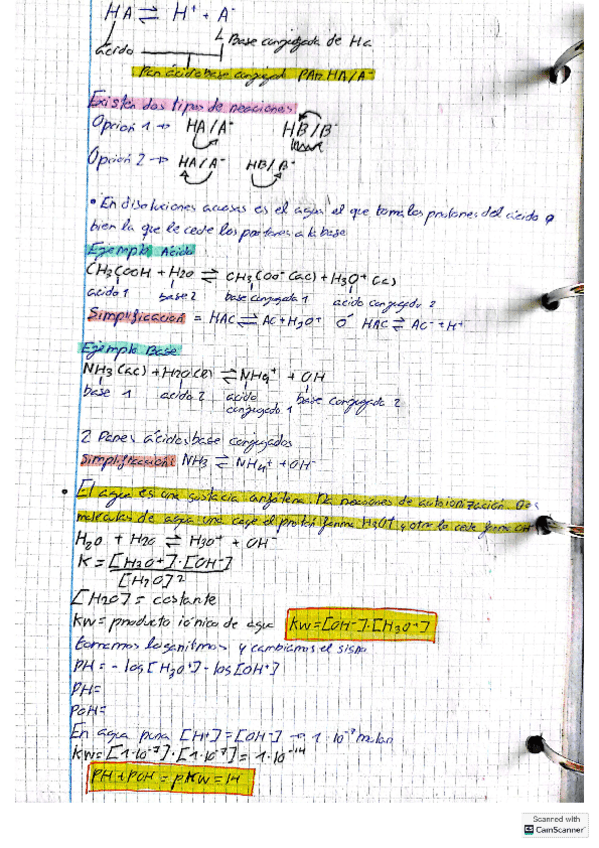 HA ⇌ H⁺ + A⁻
ácido
Base conjugada de Ha
Par ácido base conjugad PAR HA/A⁻
Existen dos tipos de reacciones
Opción 1 → HA/A⁻ HB/B⁻
Opción 2 → HA/A⁻ HB/B⁻
• En disoluciones acuosas es el agua el que toma los protones del ácido o
bien la que le cede los a la base
Ejemplo Acido
CH3COOH + H2O ⇌ CH3COO⁻(ac) + H3O⁺(ac)
acido 1 base 2 base conjugada 1 acido conjugado 2
Simplificacion = HAC ⇌ AC + H3O⁺ ó HAC ⇌ AC⁻ + H⁺
Ejemplo Base
NH3 (ac) + H2O(l) ⇌ NH4⁺ + OH
base 1 acido 2 acido conjugado 1 base conjugada 2
2 Pares ácidos base conjugados
Simplificación: NH3 ⇌ NH4⁺ + OH⁻
• El agua es una sustacia anfótera. Da reacciones de autoionización. Dos
moleculas de agua una coge el proton forma H3O⁺ y otra lo cede forma OH⁻
H2O + H2O ⇌ H3O⁺ + OH⁻
K = [H3O⁺]·[OH⁻]
[H2O]²
[H2O] = costante
Kw = producto iónico de agua Kw = [OH⁻]·[H3O⁺]
tomamos logaritmos y cambiamos el signo
PH = - log [H3O⁺] - log [OH⁺]
PH =
POH =
En agua pura [H⁺] = [OH⁻] → 1·10⁻⁷ molar
Kw = [1·10⁻⁷]·[1·10⁻⁷] = 1·10⁻¹⁴
PH + POH = pKw = 14
Scanned with
CS CamScanner